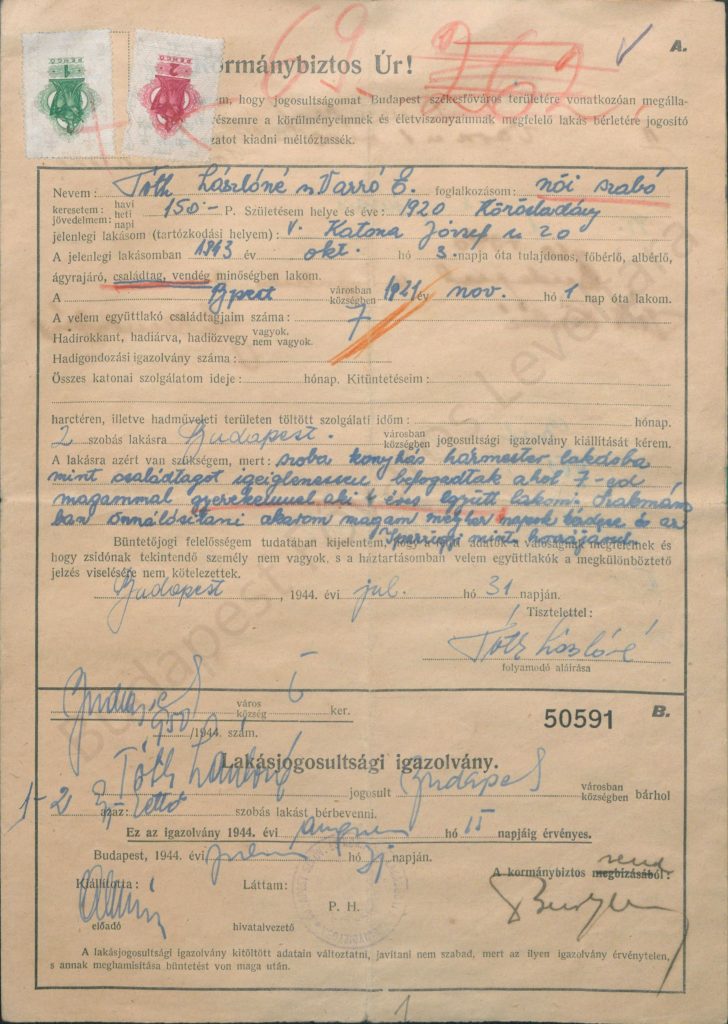 69.
262.
A.
Kormánybiztos Úr!
hogy jogosultságomat Budapest székesfőváros területére vonatkozóan megálla-
részemre a körülményeimnek és életviszonyaimnak megfelelő lakás bérletére jogosító
kiadni méltóztassék.
Nevem: Tóth Lászlóné n. Varró E. foglalkozásom: női szabó
keresetem: jövedelmem: havi heti napi 150.- P. Születésem helye és éve: 1920 Körösladány
jelenlegi lakásom (tartózkodási helyem): V. Katona József u 20
A jelenlegi lakásomban 1943 év okt. hó 3. napja óta tulajdonos, főbérlő, albérlő,
ágyrajáró, családtag, vendég minőségben lakom.
A Bpest városban községben 1921 év nov. hó 1 nap óta lakom.
A velem együttlakó családtagjaim száma: 7
Hadirokkant, hadiárva, hadiözvegy vagyok. nem vagyok.
Hadigondozási igazolvány száma:
Összes katonai szolgálatom ideje: hónap. Kitüntetéseim:
harctéren, illetve hadműveleti területen töltött szolgálati időm: hónap.
2 szobás lakásra Budapest. városban községben jogosultsági igazolvány kiállítását kérem.
A lakásra azért van szükségem, mert: szoba konyhás házmester lakásba
mint családtagot befogadtak ahol 7-ed
magammal gyerekemmel aki 4 éves együtt lakom. Szakmám
ban önnálósítani akarom magam
mint
Büntetőjogi felelősségem tudatában kijelentem, hogy a fenti adatok a valóságnak megfelelnek és
hogy zsidónak tekintendő személy nem vagyok, s a háztartásomban velem együttlakók a megkülönböztető
jelzés viselésére nem kötelezettek.
Budapest, 1944. évi jul. hó 31 napján.
Tisztelettel:
Tóth Lászlóné
folyamodó aláírása
Budapest város község ker.
/1944. szám.
50591
B.
Tóth Lászlóné
Lakásjogosultsági igazolvány.
jogosult Budapest városban községben bárhol
1-2 azaz: szobás lakást bérbevenni.
Ez az igazolvány 1944. évi hó napjáig érvényes.
Budapest, 1944. évi hó 31 napján.
rend
A kormánybiztos megbízásából:
Kiállította: Láttam:
P. H.
előadó hivatalvezető
A lakásjogosultsági igazolvány kitöltött adatain változtatni, javítani nem szabad, mert az ilyen igazolvány érvénytelen,
s annak meghamisítása büntetést von maga után.
1